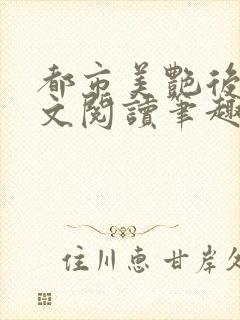 都市美艷後
文閱讀筆趣
住川惠甘岸久